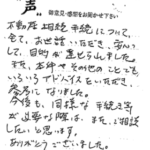 声
御意見・感想をお聞かせ下さい
不動産相続手続について、
全て、お世話いただき、安心
して、目的が果せました。
また、本件やその他のことでも
いろいろアドバイスをいただい
参考になりました。
今後も、同様な手続き等
が必要な際は、また、ご相談
したいと思います。
ありがとうございました。